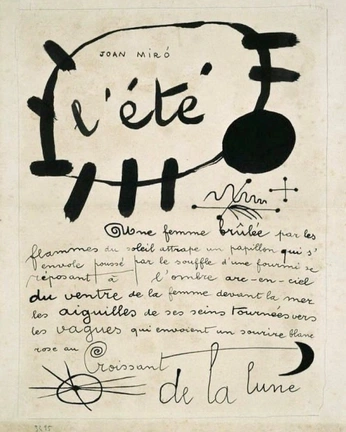 JOAN MIRÓ
l'été
Une femme brûlée par les
flammes du soleil attrape un papillon qui s'
envole poussé par le souffle d'une fourmi se
reposant à l'ombre arc-en-ciel
du ventre de la femme devant la mer
les aiguilles de ses seins tournées vers
les vagues qui envoient un sourire blanc
rose au Croissant
de la lune